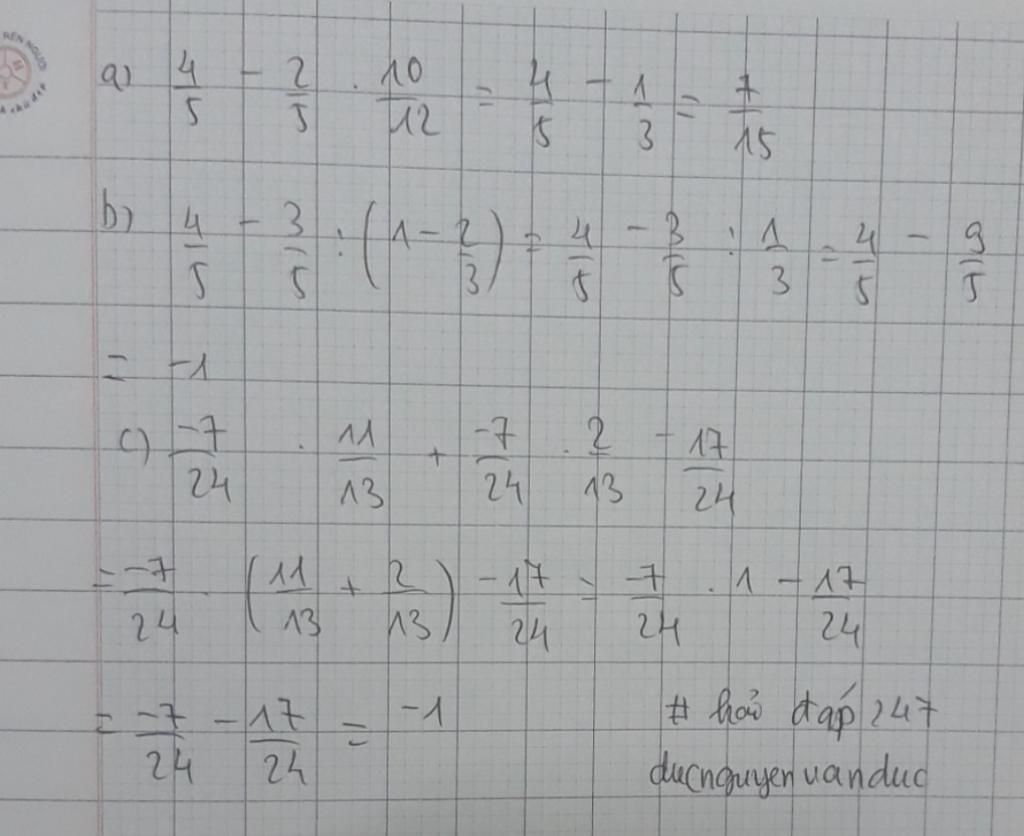 RÈN NGƯỜI
a) 4/5 - 2/5 . 10/12 = 4/5 - 1/3 = 7/15
b) 4/5 - 3/5 : (1 - 2/3) = 4/5 - 3/5 : 1/3 = 4/5 - 9/5
= -1
c) -7/24 . 11/13 + -7/24 . 2/13 - 17/24
= -7/24 . (11/13 + 2/13) - 17/24 = -7/24 . 1 - 17/24
= -7/24 - 17/24 = -1
# hoỏ đáp 247
ducnguyenvanduc